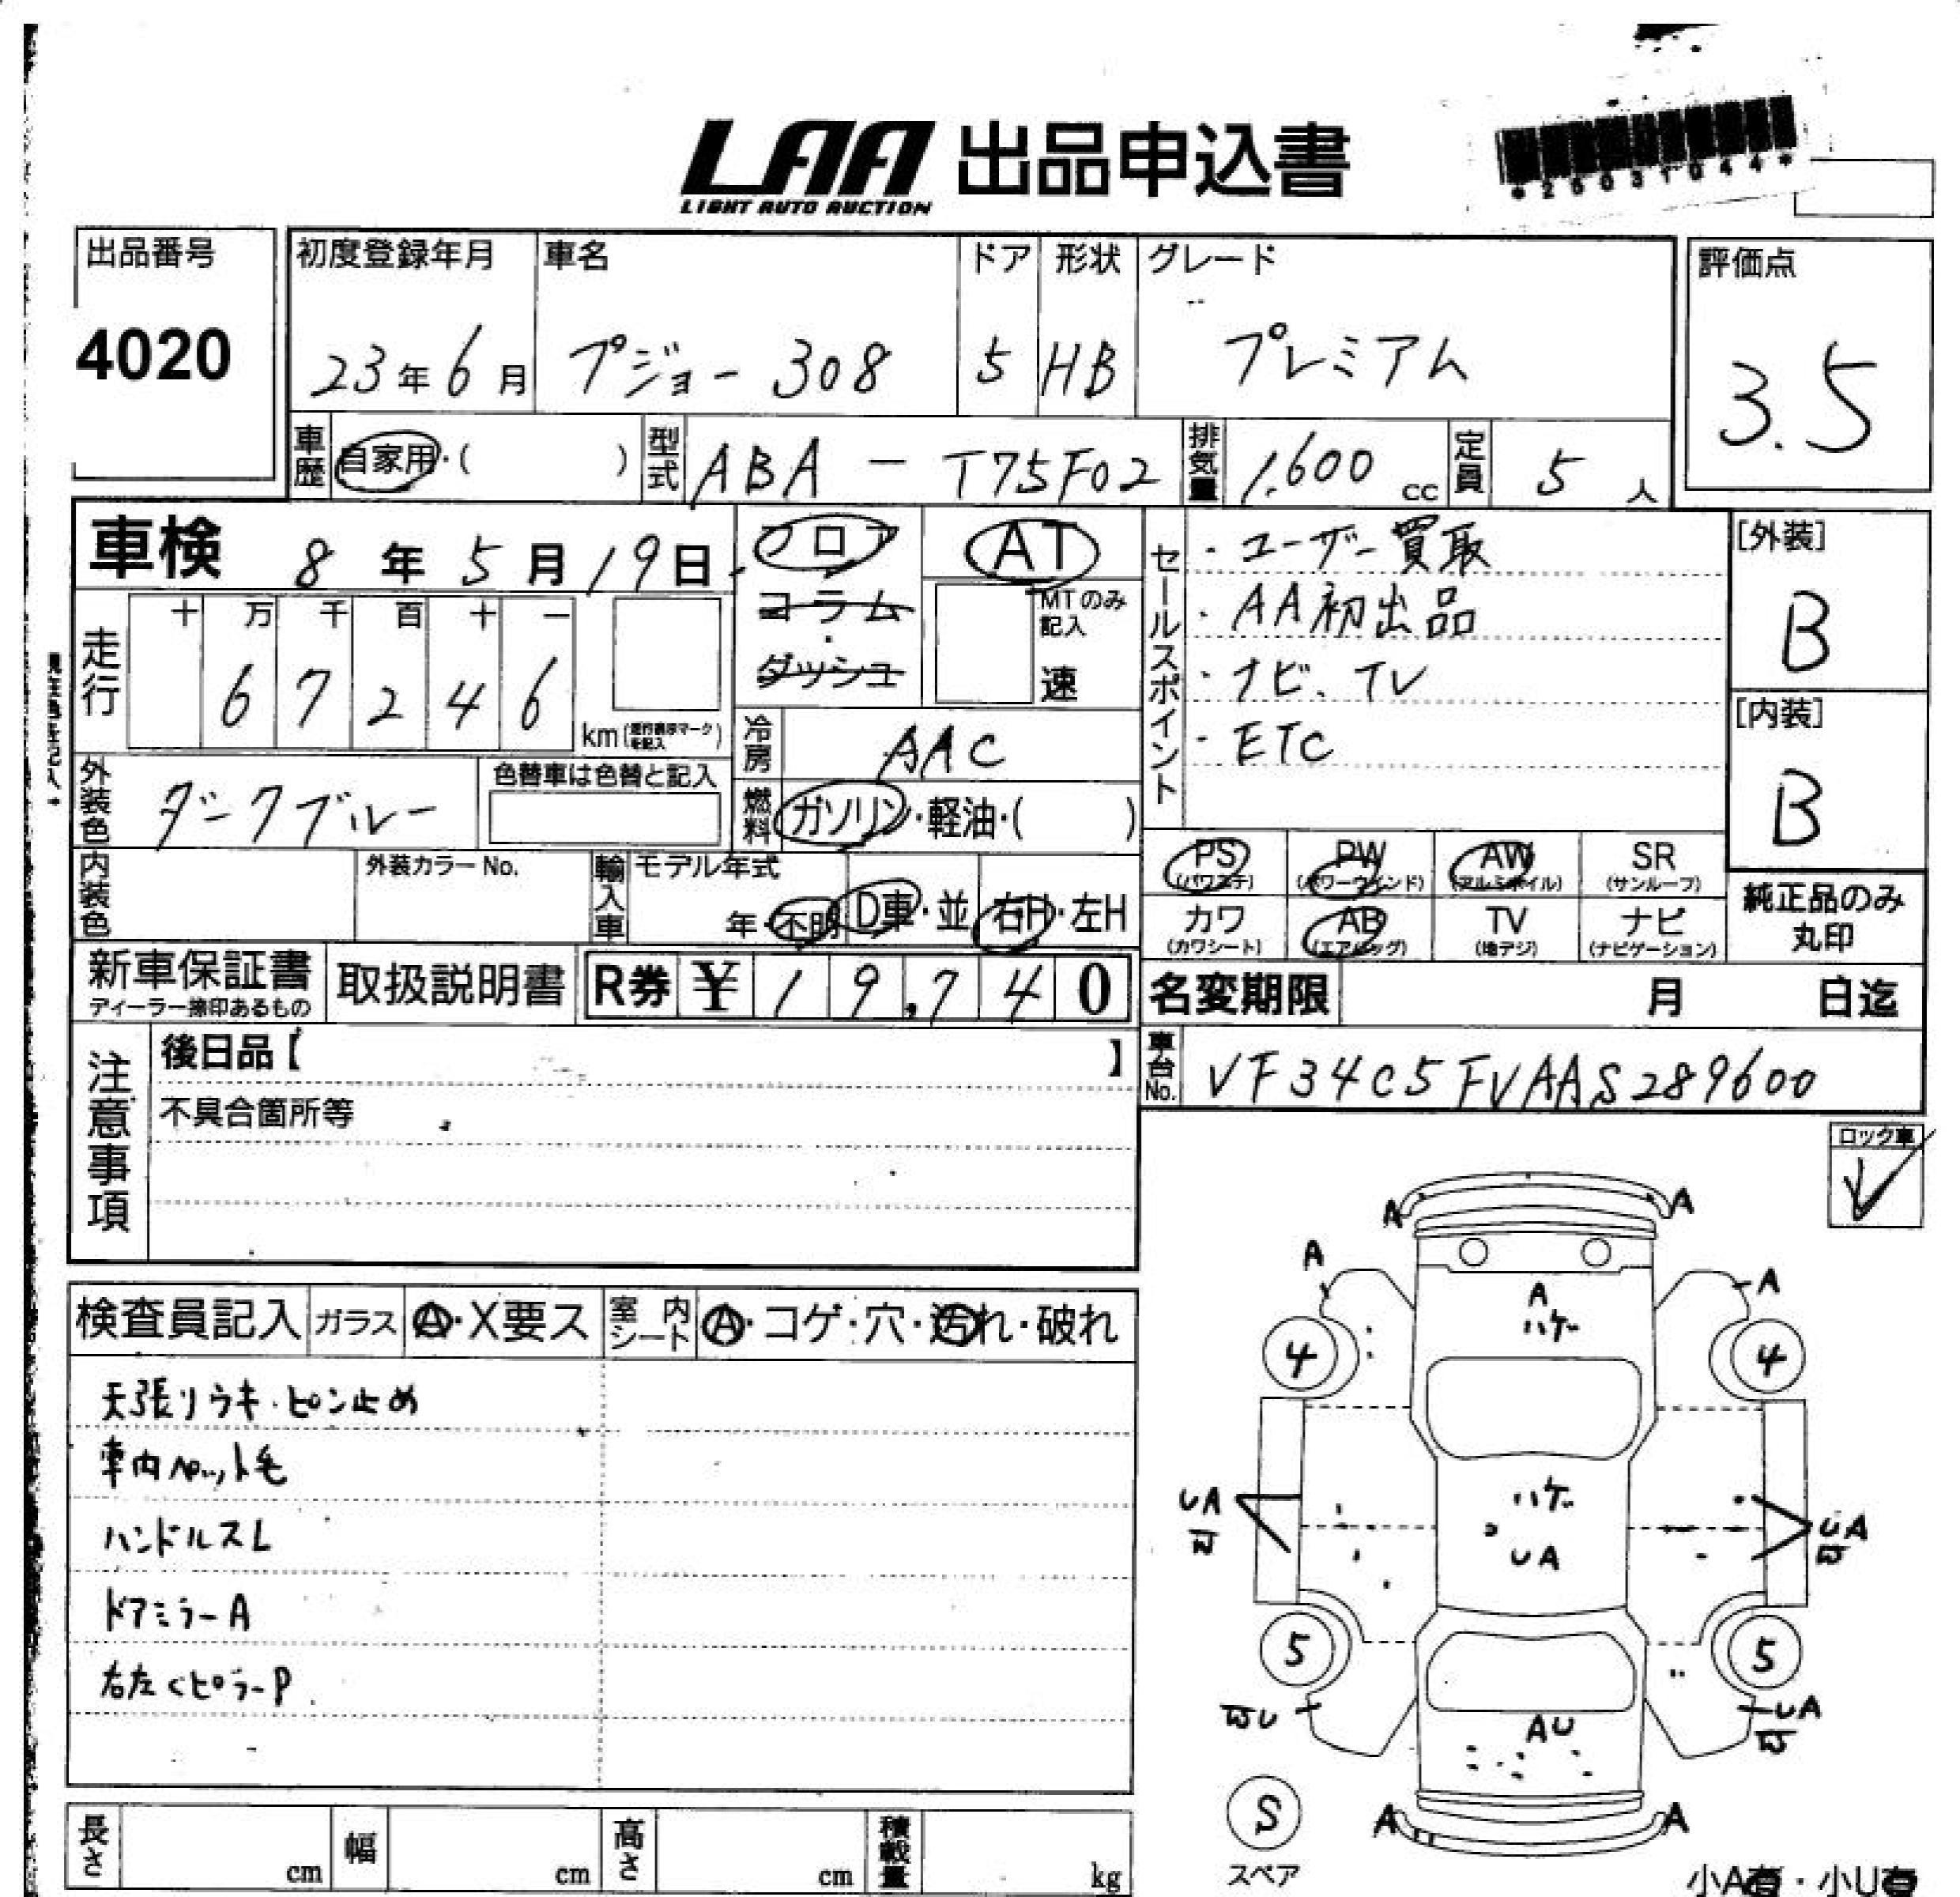 LAA 出品申込書
LIGHT AUTO AUCTION
*25031044*
出品番号
4020
初度登録年月 車名 ドア 形状 グレード
23年6月 プジョー 308 5 HB プレミアム
評価点
3.5
車歴 自家用・( ) 型式 ABA - T75F02 排気量 1,600 cc 定員 5 人
車検 8年5月19日
フロア
コラム
・
ダッシュ
AT
MTのみ記入
速
走行
十 万 千 百 十 一
6 7 2 4 6 km
冷房 AAC
燃料 ガソリン・軽油・( )
外装色 ダークブルー
色替車は色替と記入
内装色
外装カラーNo.
輸入車 モデル年式
年・不明 D車・並 右H・左H
セールスポイント
・ユーザー買取
・AA初出品
・ナビ、TV
・ETC
[外装]
B
[内装]
B
PS (パワステ) PW (パワーウインド) AW (アルミホイル) SR (サンルーフ)
カワ (カワシート) AB (エアバッグ) TV (地デジ) ナビ (ナビゲーション)
純正品のみ
丸印
新車保証書
ディーラー捺印あるもの
取扱説明書
R券 ¥ 1 9,7 4 0
名変期限 月 日迄
車台No. VF34C5FVAAS289600
注意事項
後日品【 】
不具合箇所等
ロック車
検査員記入 ガラス A・X要ス 室内シート A・コゲ・穴・汚れ・破れ
天張りウキ・ピン止め
車内ペット毛
ハンドルスレ
ドアミラーA
右左Cピラ-P
A A
A A
A
ハゲ
4 4
ハゲ
UA
UA
UA
5 5
U
UA
AU
S
スペア
A A
長さ cm 幅 cm 高さ cm 積載量 kg
小A有・小U有